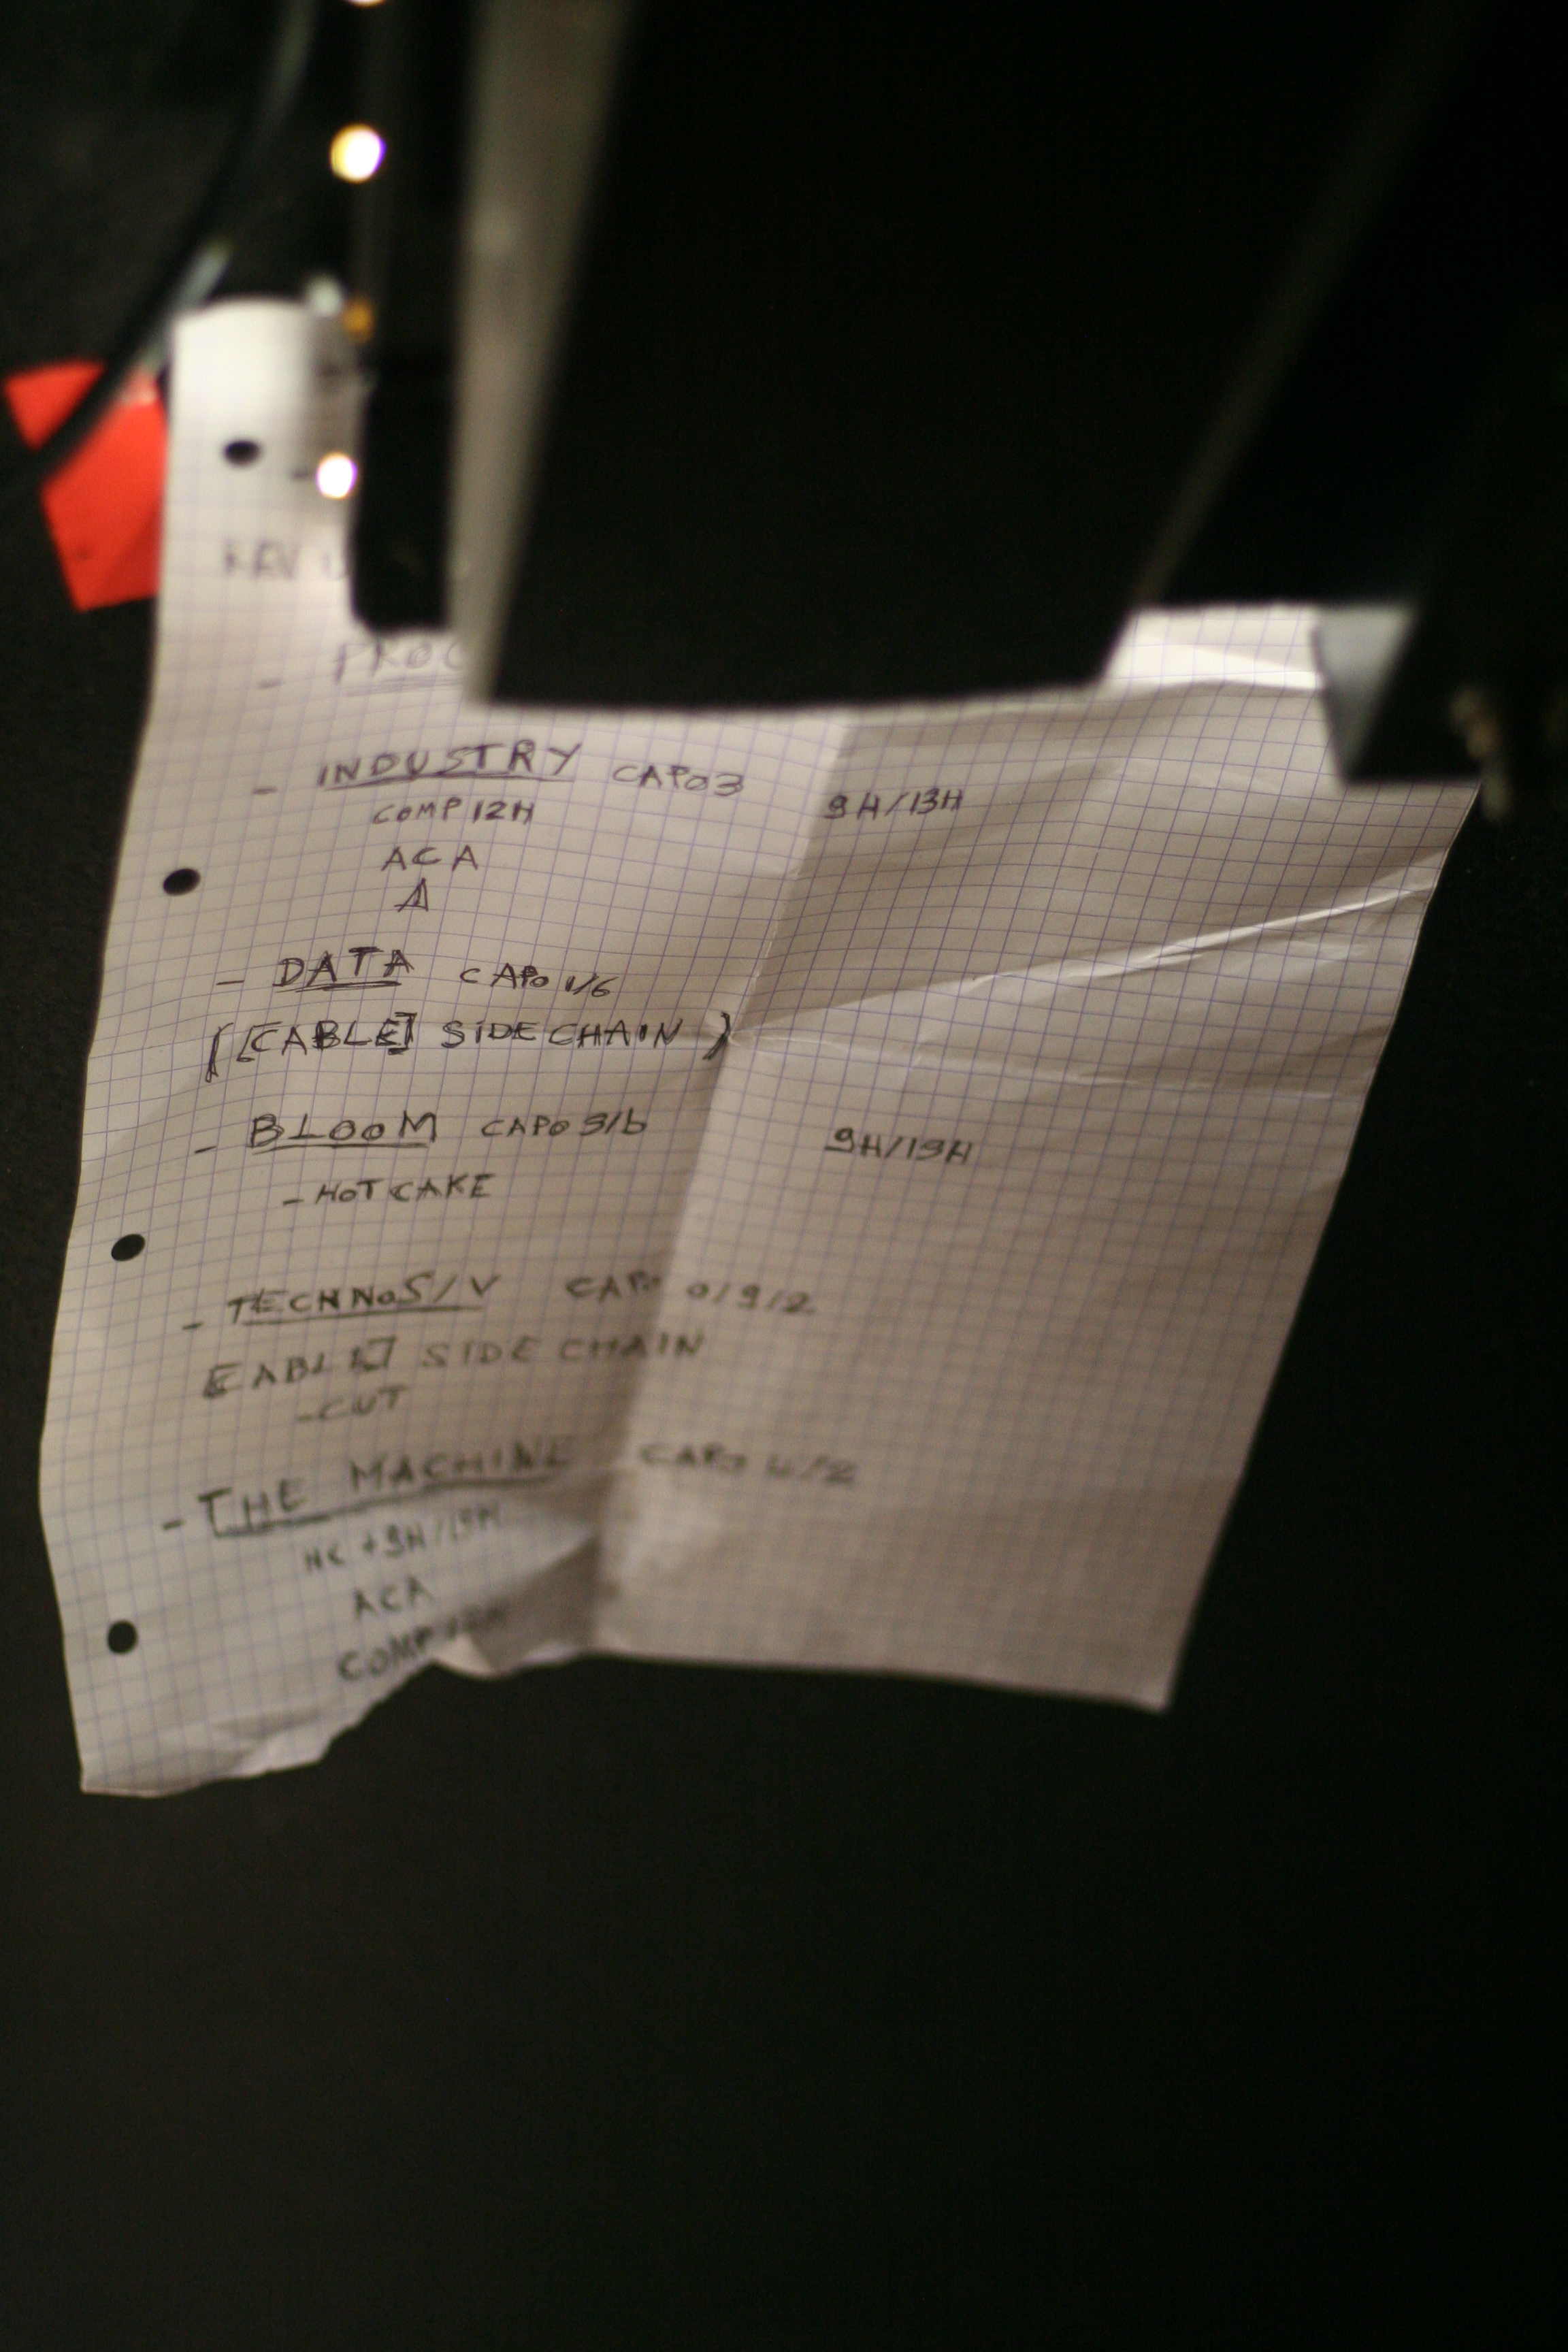 - PROC
- INDUSTRY CAPO 3 9H/13H
COMP 12H
ACA
- DATA CAPO 1/6
([CABLE] SIDE CHAIN)
- BLOOM CAPO 9/6 9H/19H
- HOT CAKE
- TECHNOS/V CAPO 0/9/2
[CABLE] SIDE CHAIN
- CUT
- THE MACHINE CAPO 4/2
ACA
COMP